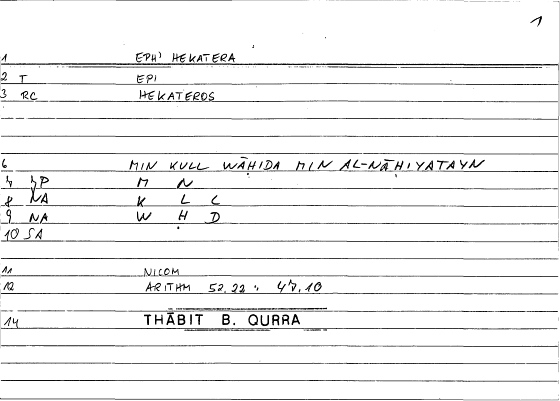 1
1 EPH' HEKATERA
2 T EPI
3 RC HEKATEROS
6 MIN KULL WĀḤIDA MIN AL-NĀḤIYATAYN
M N
8 NA K L L
9 NA W Ḥ D
10 SA
11 NICOM
12 ARITHM 52,22 47,10
14 THĀBIT B. QURRA